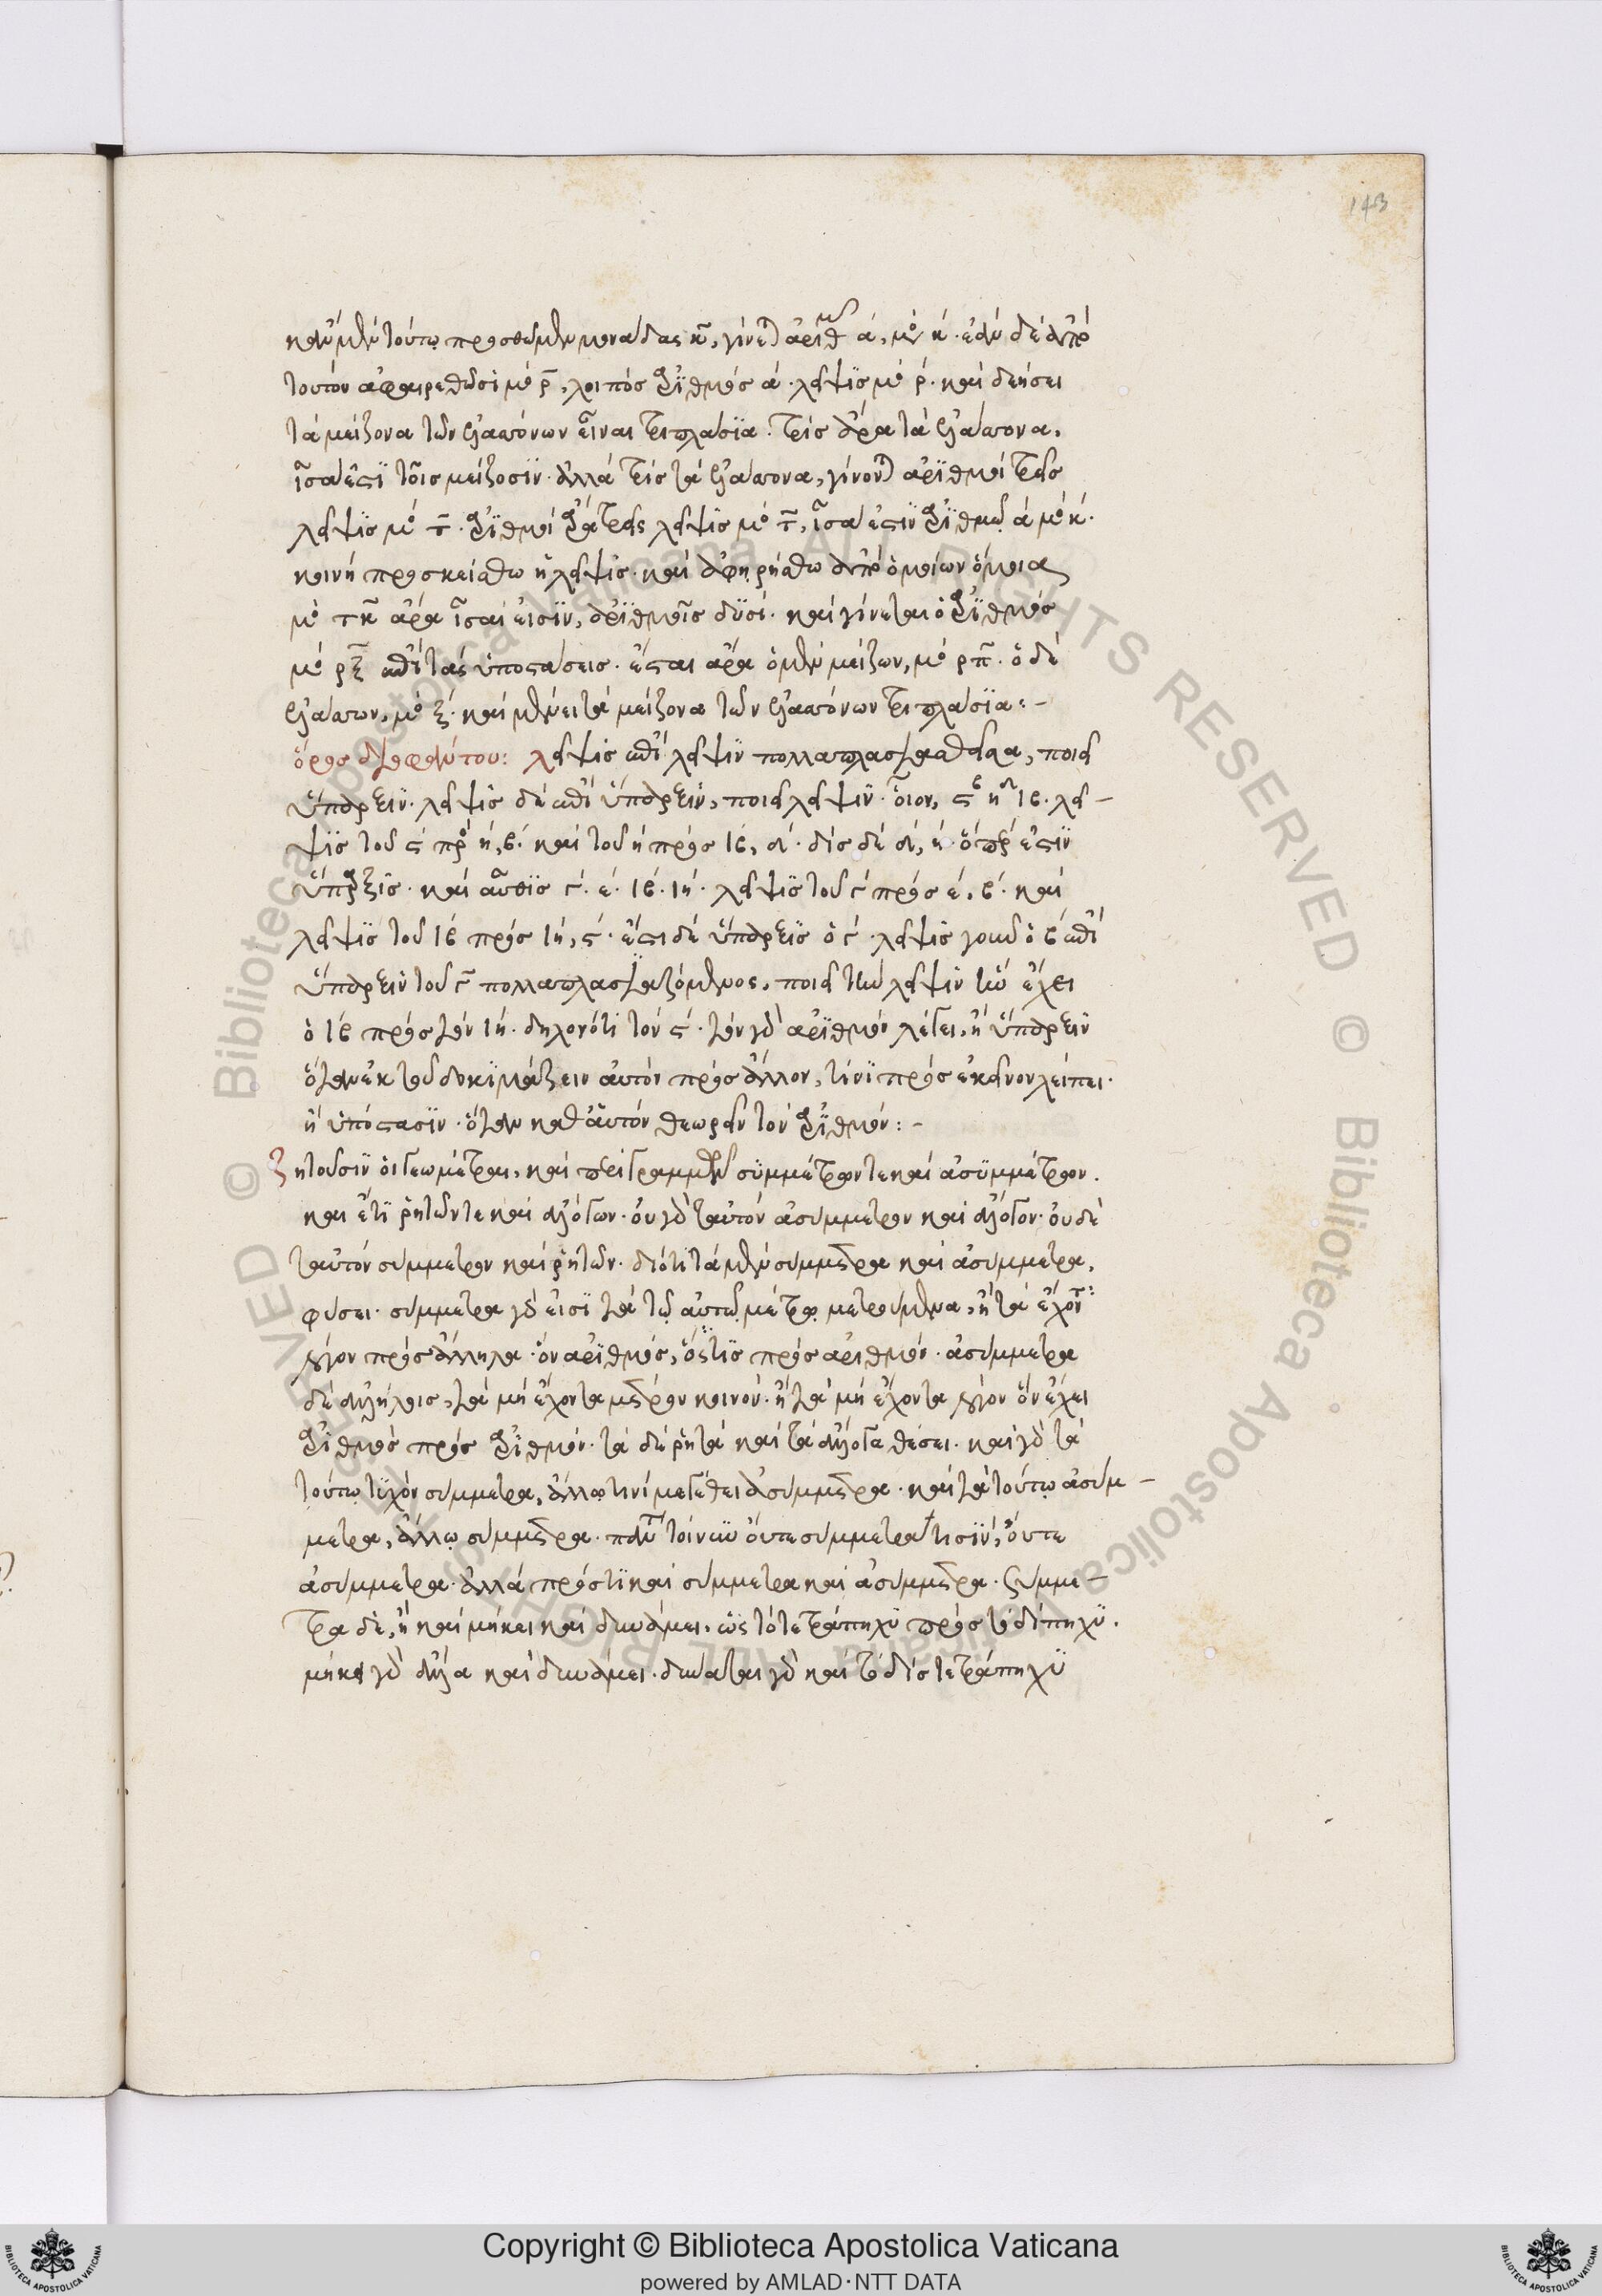 143
κἂν μὲν τούτω προσθῶμεν μονάδας κ̄, γίνεται ἀριθμ ά, μο κ. ἐὰν δὲ ἀπὸ
τουτὸν ἀφαιρεθῶσι μο ρ̄, λοιπὸς ἀριθμὸς ά. λείψις μο ρ. καὶ δεήσει
τὰ μείζονα τῶν ἐλασσόνων εἶναι τριπλασία. τρὶς ἄρα τὰ ἐλάσσονα,
ἴσα ἐστὶ τοῖς μείζοσιν. ἀλλὰ τρὶς τὰ ἐλάσσονα, γίνονται ἀριθμοὶ τρεῖς
λείψις μο τ̄. ἀριθμοὶ ἄρα τρεῖς λείψις μο τ̄, ἴσα ἐστὶν ἀριθμῷ ά μο κ.
κοινὴ προσκείσθω ἡ λεῖψις. καὶ ἀφῃρήσθω ἀπὸ ὁμοίων ὅμοια
μο τκ̄ ἄρα ἴσαι εἰσὶν, ἀριθμοῖς δυσί. καὶ γίνεται ὁ ἀριθμὸς
μο ρξ̄ ἐπὶ τὰς ὑποστάσεις. ἔσται ἄρα ὁ μὲν μείζων, μο ρπ̄. ὁ δὲ
ἐλάσσων, μο ξ. καὶ μένει τὰ μείζονα τῶν ἐλασσόνων τριπλασία:-
ὅρος διοφάντου: λεῖψις ἐπὶ λεῖψιν πολλαπλασιασθεῖσα, ποιεῖ
ὕπαρξιν. λεῖψις δὲ ἐπὶ ὕπαρξιν, ποιεῖ λεῖψιν. οἷον, ϛ η ιβ. λεῖ-
ψις τοῦ ϛ πρὸ ή, β. καὶ τοῦ ή πρὸς ιβ, δ. δὶς δὲ δ, ή. ὅπερ ἐστὶν
ὕπαρξις. καὶ αὖθις
λεῖψις τοῦ ιβ πρὸς ιή, ϛ. ἔστι δὲ ὕπαρξις ὁ γ. λεῖψις γοῦν ὁ β ἐπὶ
ὕπαρξιν τοῦ γ̄ πολλαπλασιαζόμενος, ποιεῖ τὴν λεῖψιν ἣν ἔχει
ὁ ιβ πρὸς τὸν ιή. δηλονότι τὸν ϛ. τὸν γὰρ ἀριθμὸν λέγει, ἢ ὕπαρξιν
ὅταν ἐκ τοῦ δοκιμάζειν αὐτὸν πρὸς ἄλλον, τίνι πρὸς ἐκεῖνον λείπει.
ἢ ὑπόστασιν. ὅταν καθ αὑτὸν θεωρεῖν τὸν ἀριθμόν:-
ζητοῦσιν οἱ γεωμέτραι, καὶ περὶ γραμμῶν συμμέτρων τε καὶ ἀσυμμέτρων.
και ἔτι ῥητῶν τε καὶ ἀλόγων. οὐ γὰρ ταὐτὸν ἀσυμμετρον καὶ ἄλογον. οὐδὲ
ταὐτὸν συμμετρον καὶ ῥητῶν. διότι τὰ μὲν συμμετρα καὶ ἀσυμμετρα,
φυσει. συμμετρα γὰρ εἰσὶ τὰ τῷ αὐτῷ μέτρῳ μετρουμενα, ἢ τὰ ἔχοντ
λόγον πρὸς ἄλληλα. ὃν ἀριθμὸς, ὅστις πρὸς ἀριθμόν. ἀσυμμετρα
δὲ ἀλλήλοις, τὰ μὴ ἔχοντα μέτρον κοινὸν. ἢ τὰ μὴ ἔχοντα λόγον ὃν ἔχει
ἀριθμὸς πρὸς ἀριθμόν. τὰ δὲ ῥητὰ καὶ τὰ ἄλογα θέσει. καὶ γὰρ τὰ
τούτῳ τυχὸν συμμετρα, ἄλλῳ τινὶ μεγέθει ἀσυμμετρα. καὶ τὰ τούτῳ ἀσυμ-
μετρα, ἄλλῳ συμμετρα. πάντα τοίνυν οὔτε συμμετρα τισὶν, οὔτε
ἀσυμμετρα. ἀλλὰ πρὸς τι καὶ συμμετρα καὶ ἀσυμμετρα. συμμε-
τρα δὲ, ἢ καὶ μήκει καὶ δυνάμει. ὡς τὸ τετράπηχυ πρὸς τὸ δίπηχυ.
μήκει γὰρ διπλα καὶ δυνάμει. δυναται γὰρ καὶ τὸ δὶς τετράπηχυ
Copyright © Biblioteca Apostolica Vaticana
powered by AMLAD·NTT DATA